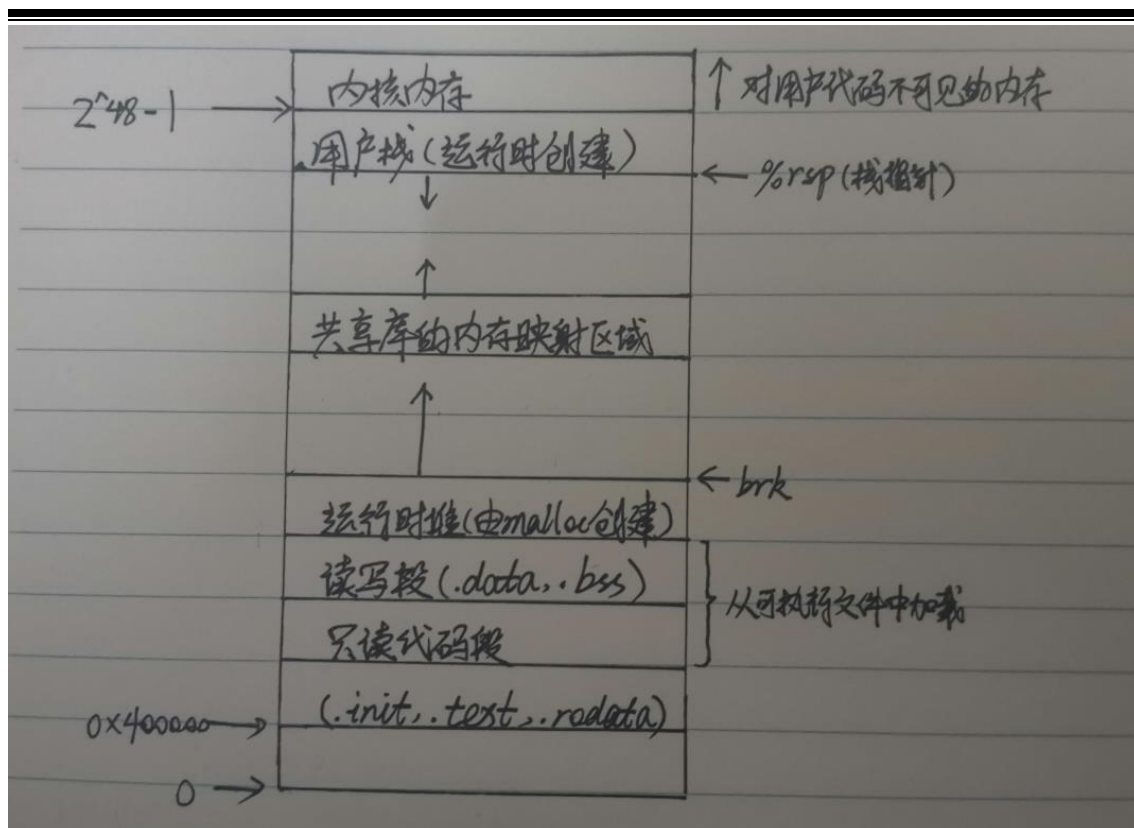 内核内存
↑ 对用户代码不可见的内存
2^48-1 →
用户栈(运行时创建)
← %rsp(栈指针)
共享库的内存映射区域
← brk
运行时堆(由malloc创建)
读写段(.data,.bss)
从可执行文件中加载
只读代码段
(.init,.text,.rodata)
0x400000 →
0 →